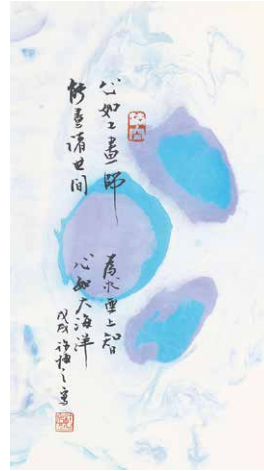 心如工畫師
能畫諸世间
為求無上智
心如大海洋
戊戌